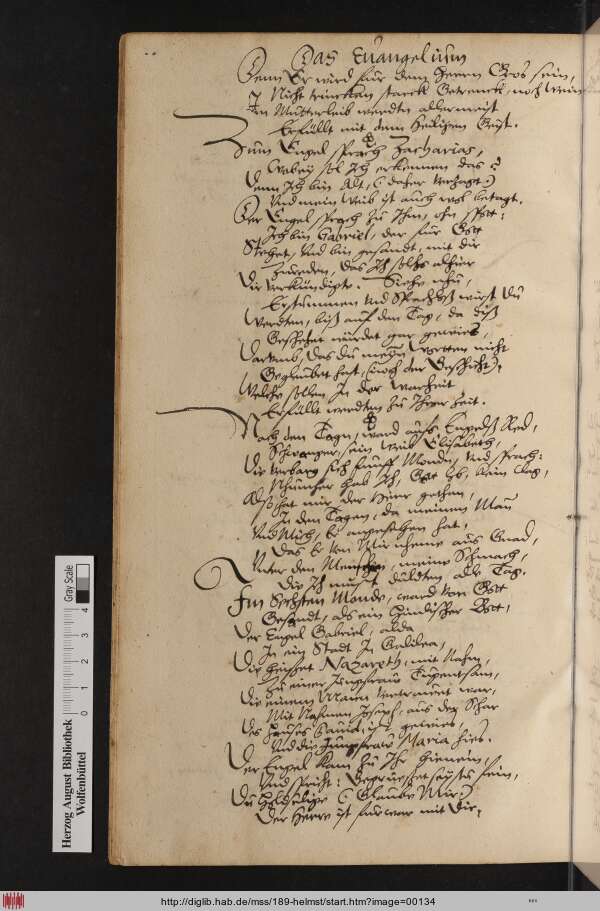 Das Euangelium
Denn Er wird für dem Herrn Gros sein,
Nicht trincken starck Getrenck, noch Wein
In Mutterleib werdtn allermeist
Erfüllt mit dem Heiligen Geist.
Zum Engel sprach Zacharias,
Wobey sol Ich erkennen das?
Denn Ich bin Alt, (daher verzagt)
Vnd mein Weib ist auch wol betagt.
Der Engel sprach zu Ihm, ohn spott:
Ich bin Gabriel, der für Gott
Stehet, Vnd bin gesandt, mit dir
Zureden, das Ich solchs alhier
Dir verkündigte. Siehe nhu,
Erstummen Vnd Sprachloß wirst du
Werdten, biß auf den Tag, da diß
Geschehen würdet gar gewies,
Darumb, das du meinen Wortten nicht
Geglaubet hast, (noch der Geschicht)
Welche sollen In der Warheit
Erfüllt werdten zu Ihrer Zeit.
Nach dem Tagn, ward aufs Engels Red,
Schwanger, sein Weib Elisabeth,
Die verbarg sich fünff Monde, Vnd sprach:
Nhunmher hab Ich, Gott lob, kein klag,
Also hat mir der Herr gethan,
In den Tagen, da meinen Man
Vnd Mich, Er angesehen hat,
Das Er von Mir neme aus Gnad,
Vnter den Menschen, meine Schmach,
Die Ich must duldten alle Tag.
Im Sechsten Monde, ward von Gott
Gesandt, als ein Himlischer Bott,
Der Engel Gabriel, alda
In ein Stadt In Galilea,
Die heisset Nazareth, mit Nahm,
Zu einer Jungfraw Tugentsam,
Die einem Mann vertrauet war,
Mit Nahmen Joseph, aus der Schar
Des Hauses Dauid, ist gewies,
Vnd die Jungfraw Maria hies.
Der Engel kam zu Ihr hienein,
Vnd spricht: Gegrüesset seystu fein,
Du Holdselige (Glaube Mir)
Der Herre ist fürwar mit Dir,
Herzog August Bibliothek
Wolfenbüttel
0 1 2 3 4
Gray Scale
http://diglib.hab.de/mss/189-helmst/start.htm?image=00134